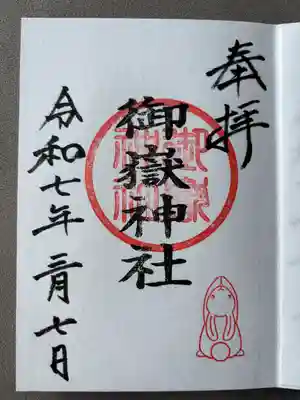 奉拝
御嶽神社
令和七年三月七日